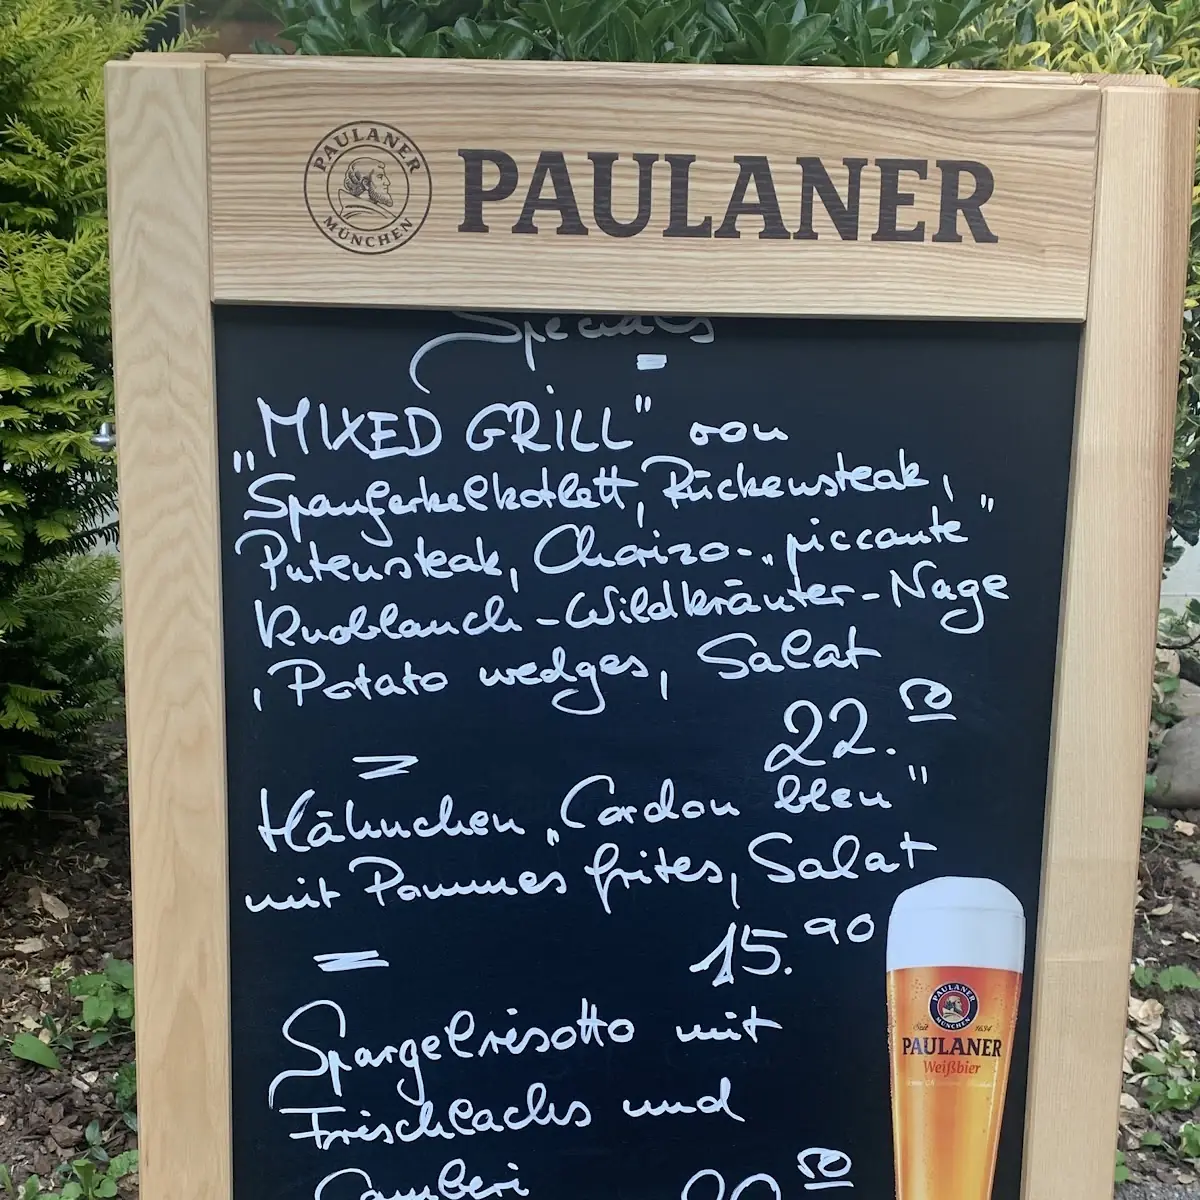 PAULANER
MÜNCHEN
PAULANER
Specials
„MIXED GRILL" von
Spanferkelkotlett, Rückensteak,
Putensteak, Chorizo-„piccante"
Knoblauch-Wildkräuter-Nage
, Potato wedges, Salat
22.50
Hähnchen „Cordon bleu"
mit Pommes frites, Salat
15.90
Spargelrisotto mit
Frischlachs und
Gamberi
20.50
PAULANER
MÜNCHEN
Seit 1634
PAULANER
Weißbier